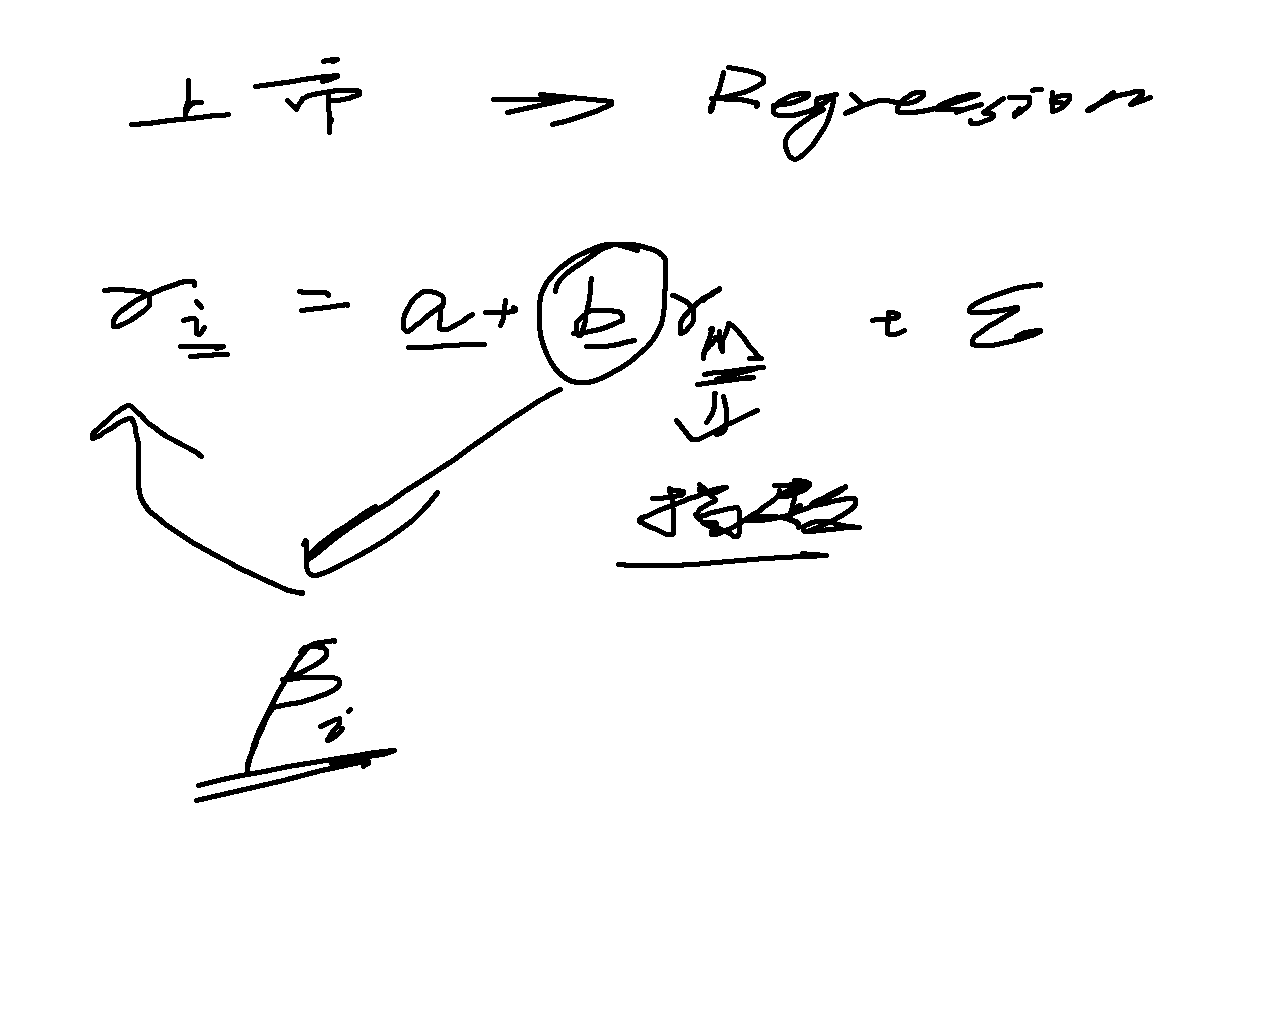 上市 → Regression
r_i = a + b r_m + ε
指数
β_i